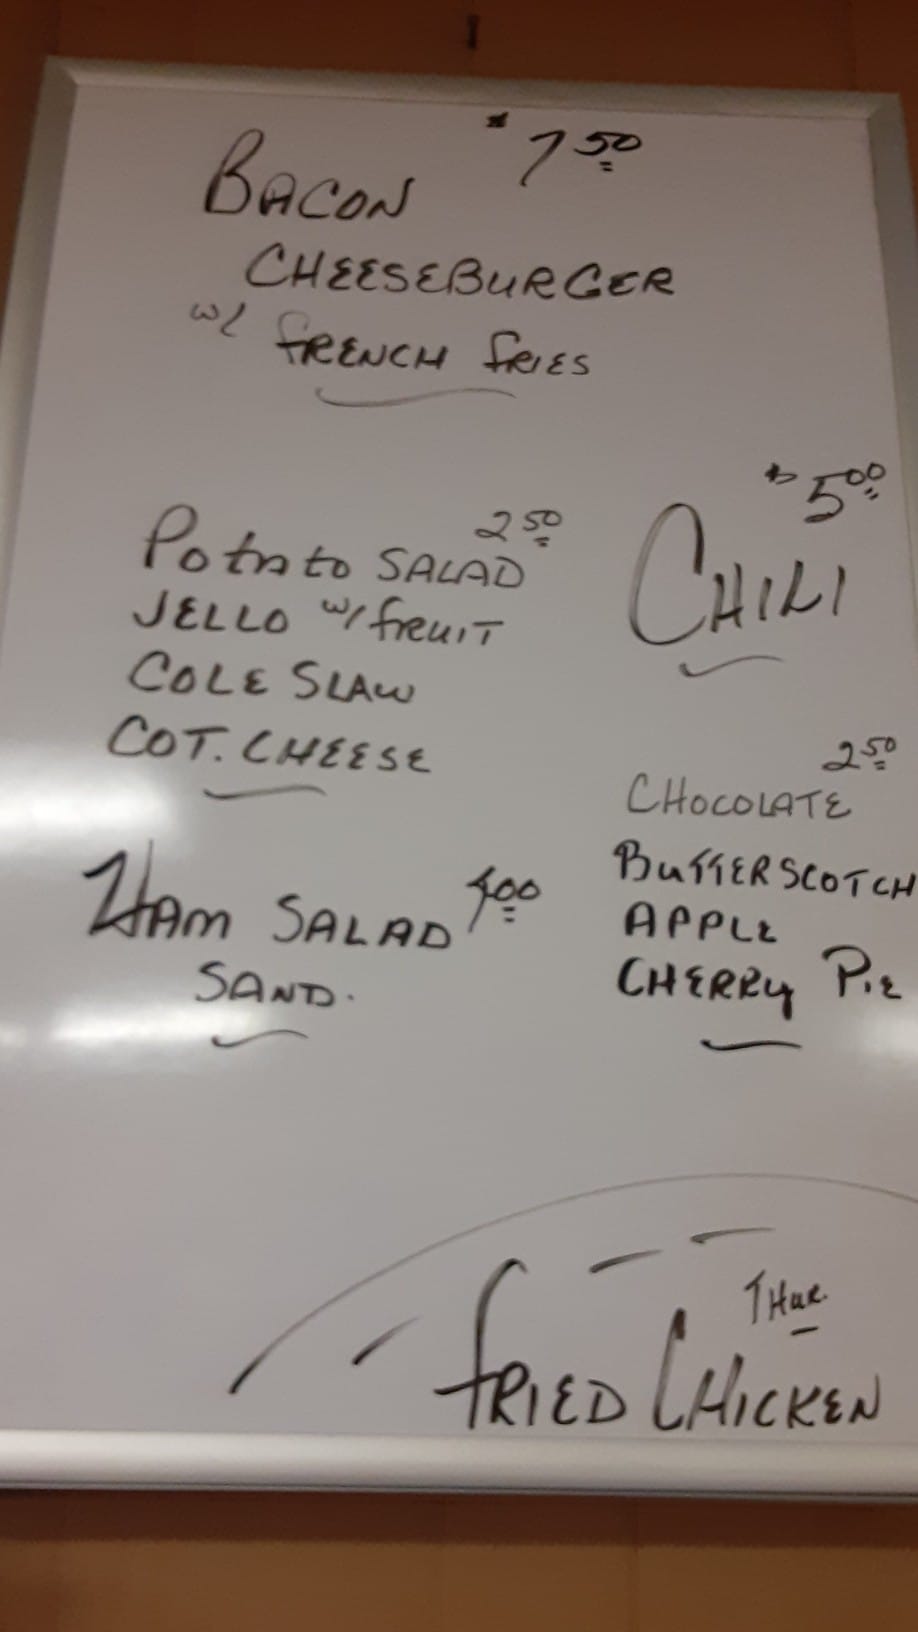 $7.50
BACON
CHEESEBURGER
w/ FRENCH FRIES
2.50
Potato SALAD
JELLO w/ fruit
COLE SLAW
COT. CHEESE
$5.00
CHILI
2.50
CHOCOLATE
BUTTERSCOTCH
APPLE
CHERRY PIE
HAM SALAD 4.00
SAND.
THUR.
FRIED CHICKEN